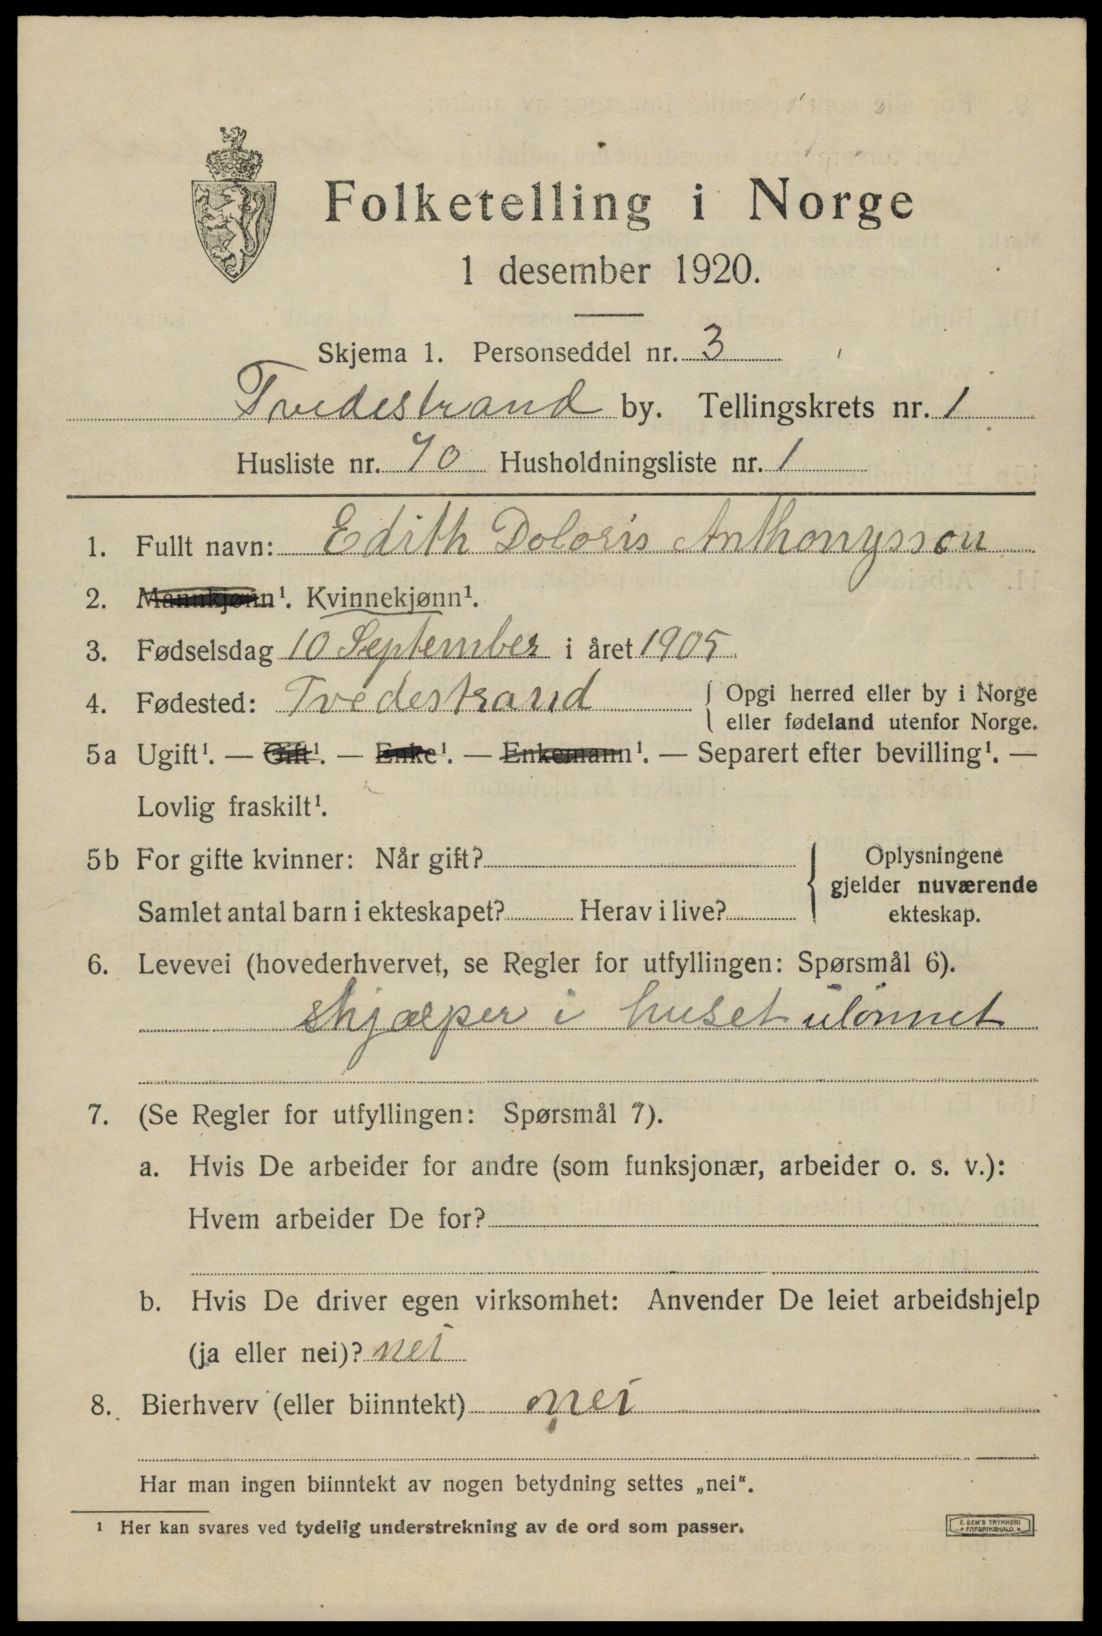 Folketelling i Norge
1 desember 1920.
Skjema 1. Personseddel nr. 3
Tvedestrand by. Tellingskrets nr. 1
Husliste nr. 70 Husholdningsliste nr. 1
1. Fullt navn: Edith Doloris Anthonyssen
2. Mannkjønn¹. Kvinnekjønn¹.
3. Fødselsdag 10 September i året 1905
4. Fødested: Tvedestrand
Opgi herred eller by i Norge
eller fødeland utenfor Norge.
5a Ugift¹. — Gift¹. — Enke¹. — Enkemann¹. — Separert efter bevilling¹. —
Lovlig fraskilt¹.
5b For gifte kvinner: Når gift?
Samlet antal barn i ekteskapet? Herav i live?
Oplysningene
gjelder nuværende
ekteskap.
6. Levevei (hovederhvervet, se Regler for utfyllingen: Spørsmål 6).
hjælper i huset ulønnet
7. (Se Regler for utfyllingen: Spørsmål 7).
a. Hvis De arbeider for andre (som funksjonær, arbeider o. s. v.):
Hvem arbeider De for?
b. Hvis De driver egen virksomhet: Anvender De leiet arbeidshjelp
(ja eller nei)? nei
8. Bierhverv (eller biinntekt) nei
Har man ingen biinntekt av nogen betydning settes „nei“.
¹ Her kan svares ved tydelig understrekning av de ord som passer.
E. SEM'S TRYKKERI
FREDRIKSHALD.